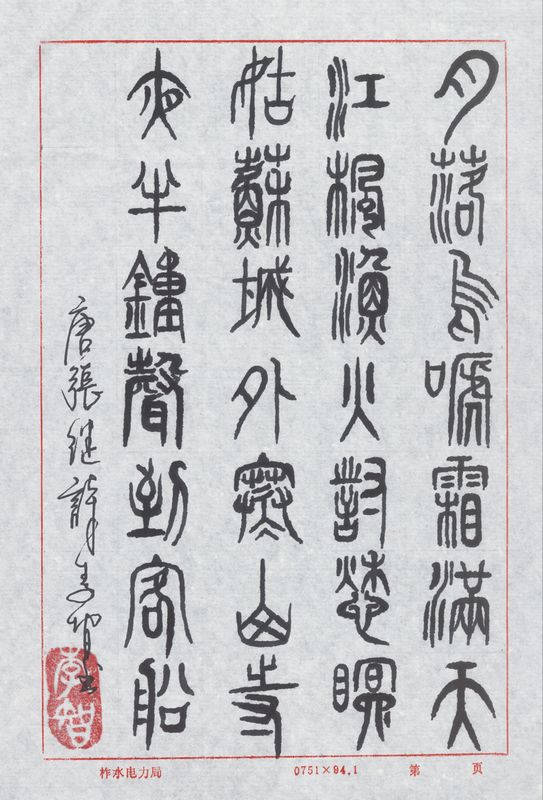 月落烏嗁霜滿天
江楓漁火對愁瞑
姑蘇城外寒山寺
夜半鐘聲到客船
唐張繼詩李智书
李智
柞水电力局 0751×94.1 第 页